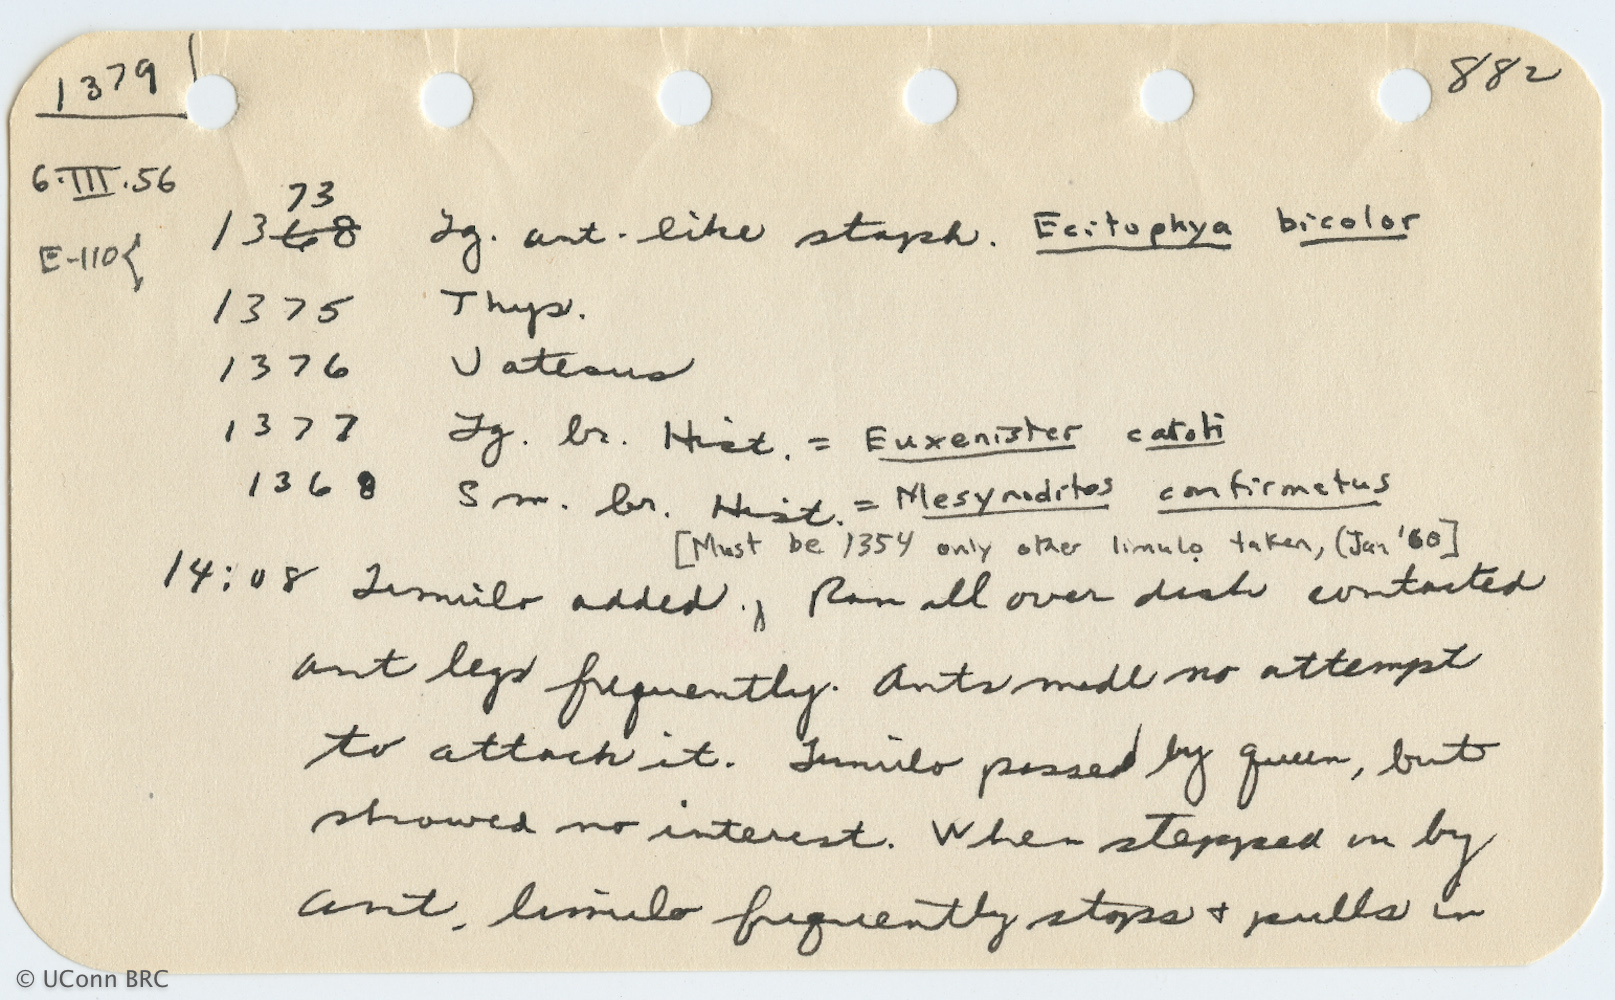 1379
882
6.III.56
E-110{
73
1368 Lg. ant-like staph. Ecitophya bicolor
1375 Thys.
1376 Vatesus
1377 Lg. br. Hist. = Euxenister
1368 Sm. br. Hist. = Mesynodites
[Must be 1354 only other limulo taken, (Jan '60]
14:08 Limulo added., Ran all over dish contacted
ant legs frequently. Ants made no attempt
to attack it. Limulo passed by queen, but
showed no interest. When stepped on by
ant, limulo frequently stops + pulls in
© UConn BRC